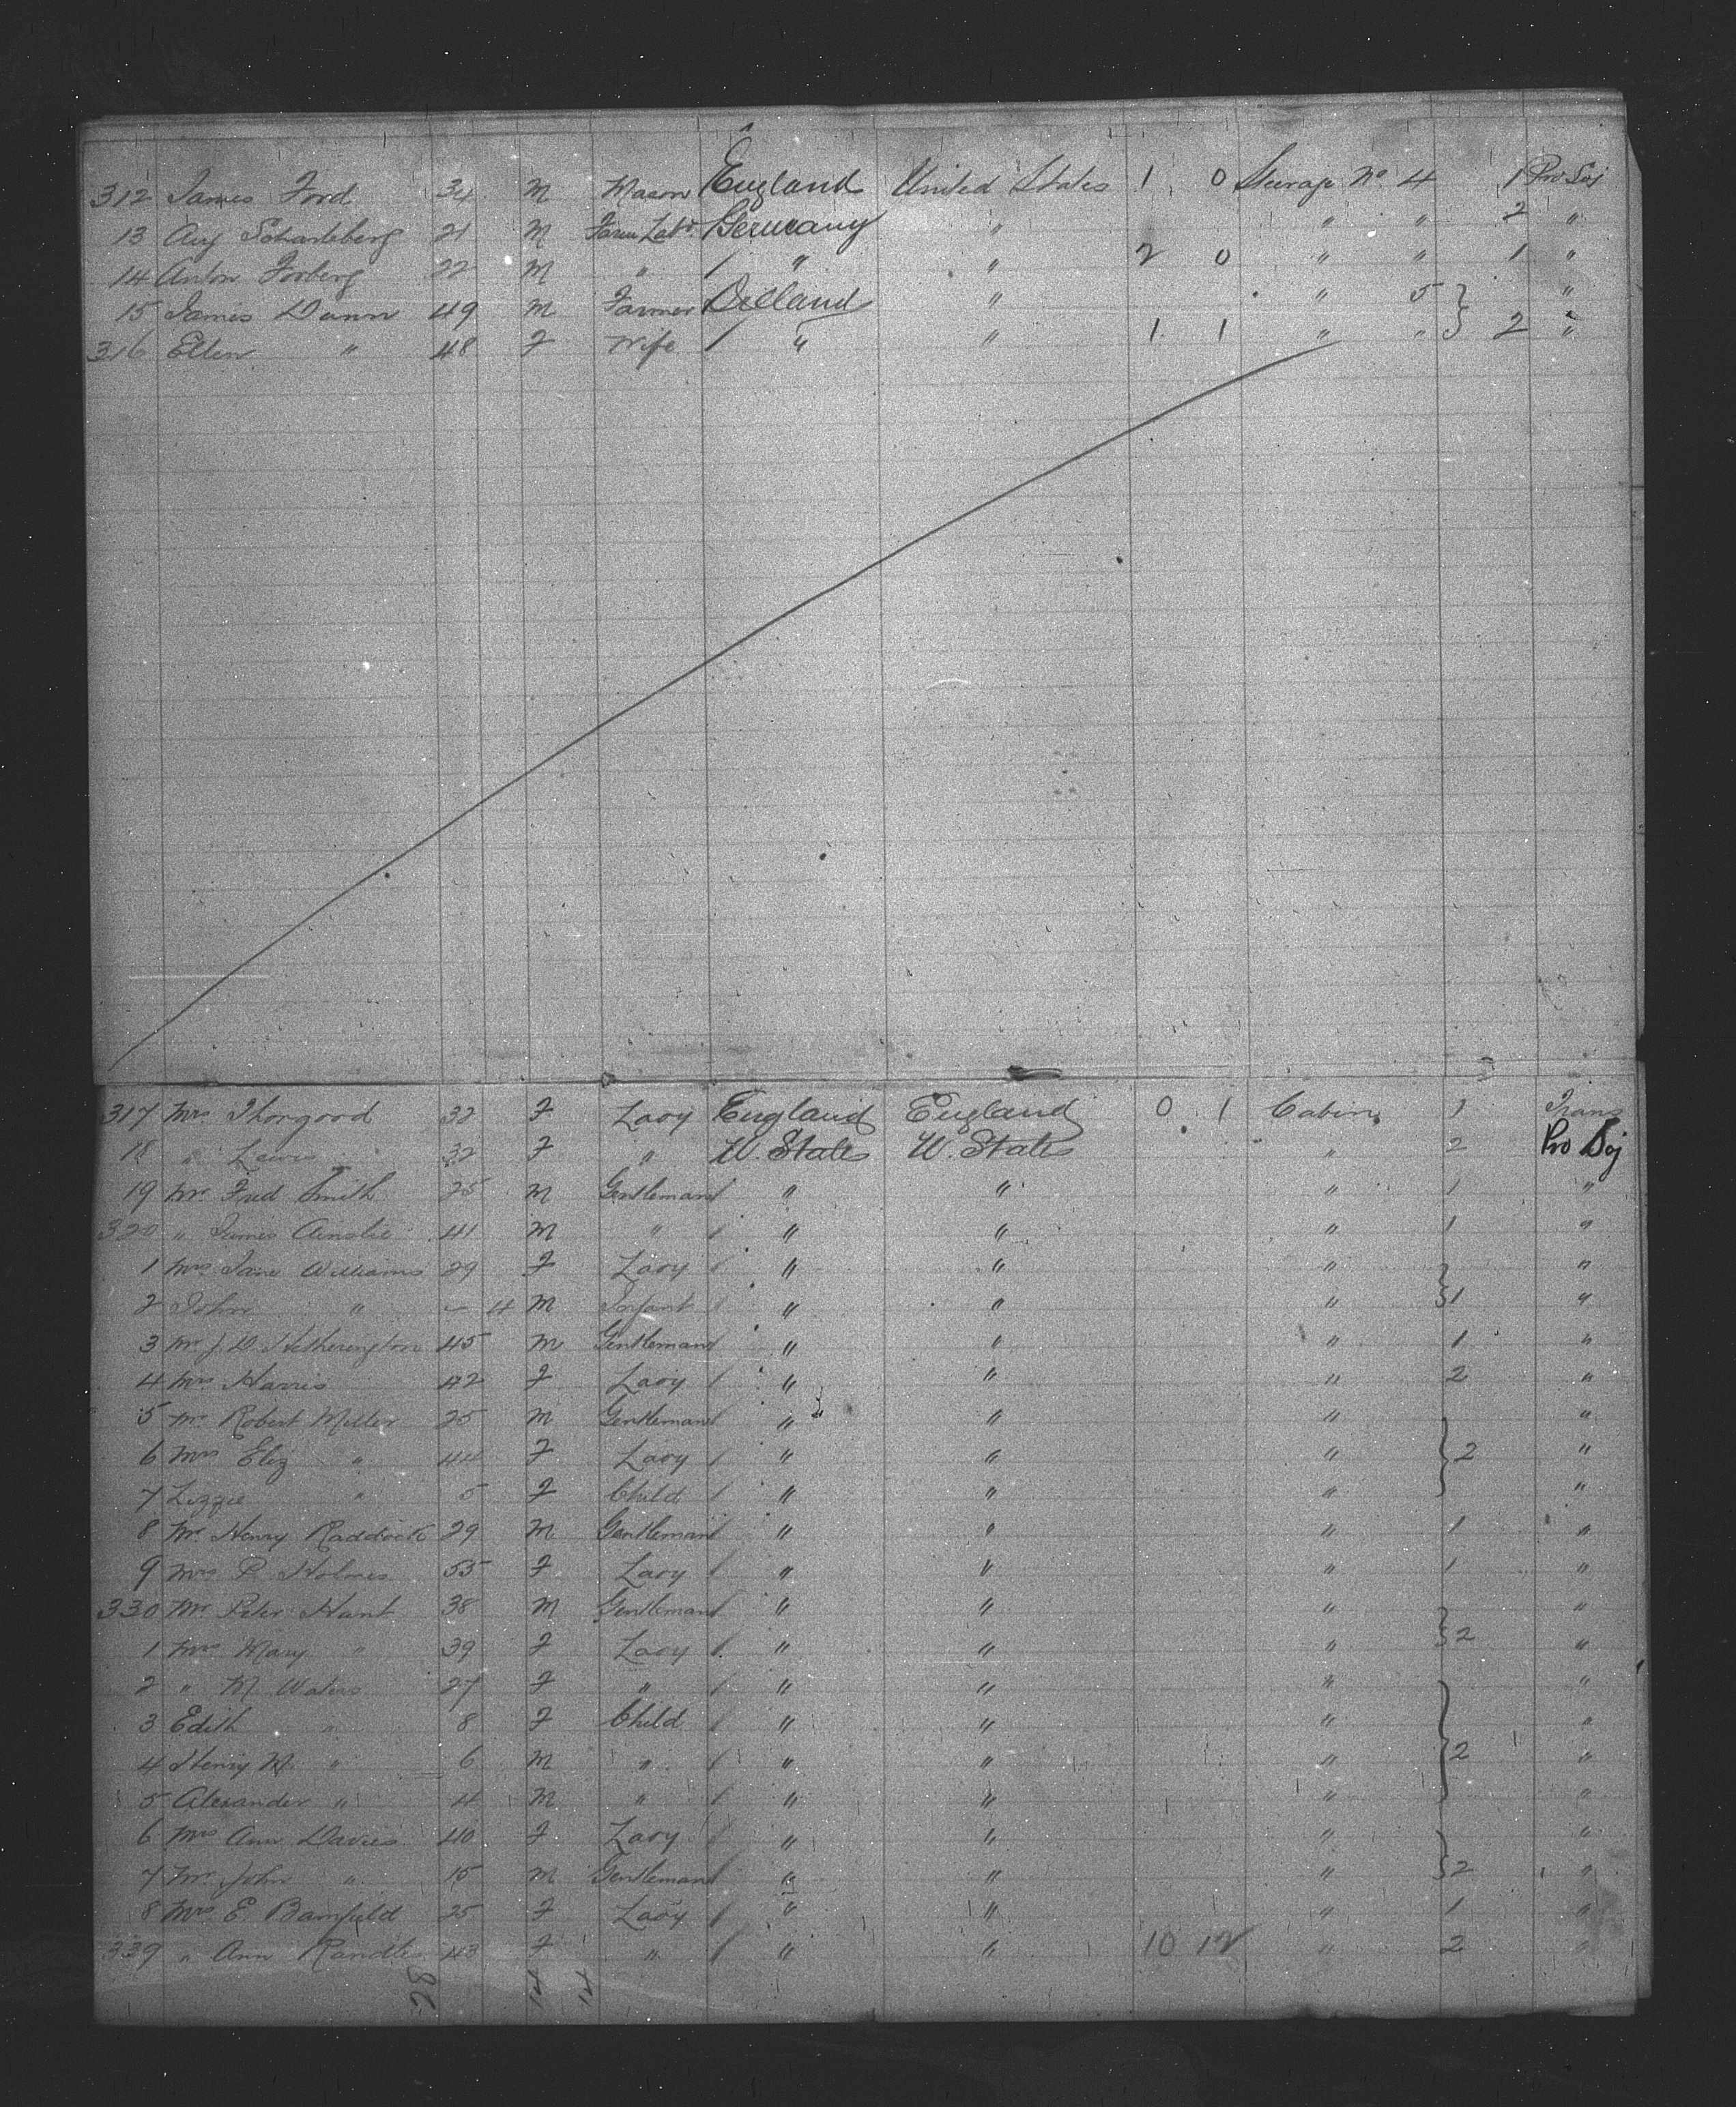 312 James Ford 34 M Mason England United States 1 0 Steerage No. 4 1 Pro Soj
13 Aug 21 M Farm Labr. Germany " " " 2 "
14 Anton Forberg 22 M " " " 2 0 " " 1 "
15 James Dunn 49 M Farmer " " 5 "
316 Ellen " 48 F Wife " " 1 1 " " 2 "
317 Mrs Thorgood 32 F Lady England England 0 1 Cabin 1 Trans
18 " Lewis 32 F " U. States U. States " 2 Pro Soj
19 Mr Fred Smith 25 M Gentleman " " " 1 "
320 " James Ainslie 41 M " " " " 1 "
1 Mrs Jane Williams 29 F Lady " " " "
2 John " - 4 M Infant " " " 1 "
3 Mr J. D. Hetherington 45 M Gentleman " " " 1 "
4 Mrs Harris 42 F Lady " " " 2 "
5 Mr Robert Miller 25 M Gentleman " " " "
6 Mrs Eliz " 44 F Lady " " " 2 "
7 Lizzie " 5 F Child " " " "
8 Mr Henry 29 M Gentleman " " " 1 "
9 Mrs P. Holmes 55 F Lady " " " 1 "
330 Mr Peter Hunt 38 M Gentleman " " " "
1 Mrs Mary " 39 F Lady " " " 2 "
2 " M Waters 27 F " " " " "
3 Edith " 8 F Child " " " "
4 Henry " 6 M " " " " 2 "
5 Alexander " 4 M " " " " "
6 Mrs Ann Davies 40 F Lady " " " "
7 Mr John " 15 M Gentleman " " " 2 "
8 Mrs E. Bamfield 25 F Lady " " " 1 "
339 " Ann Randles 43 F " " " 10 12 " 2 "
28 14 14